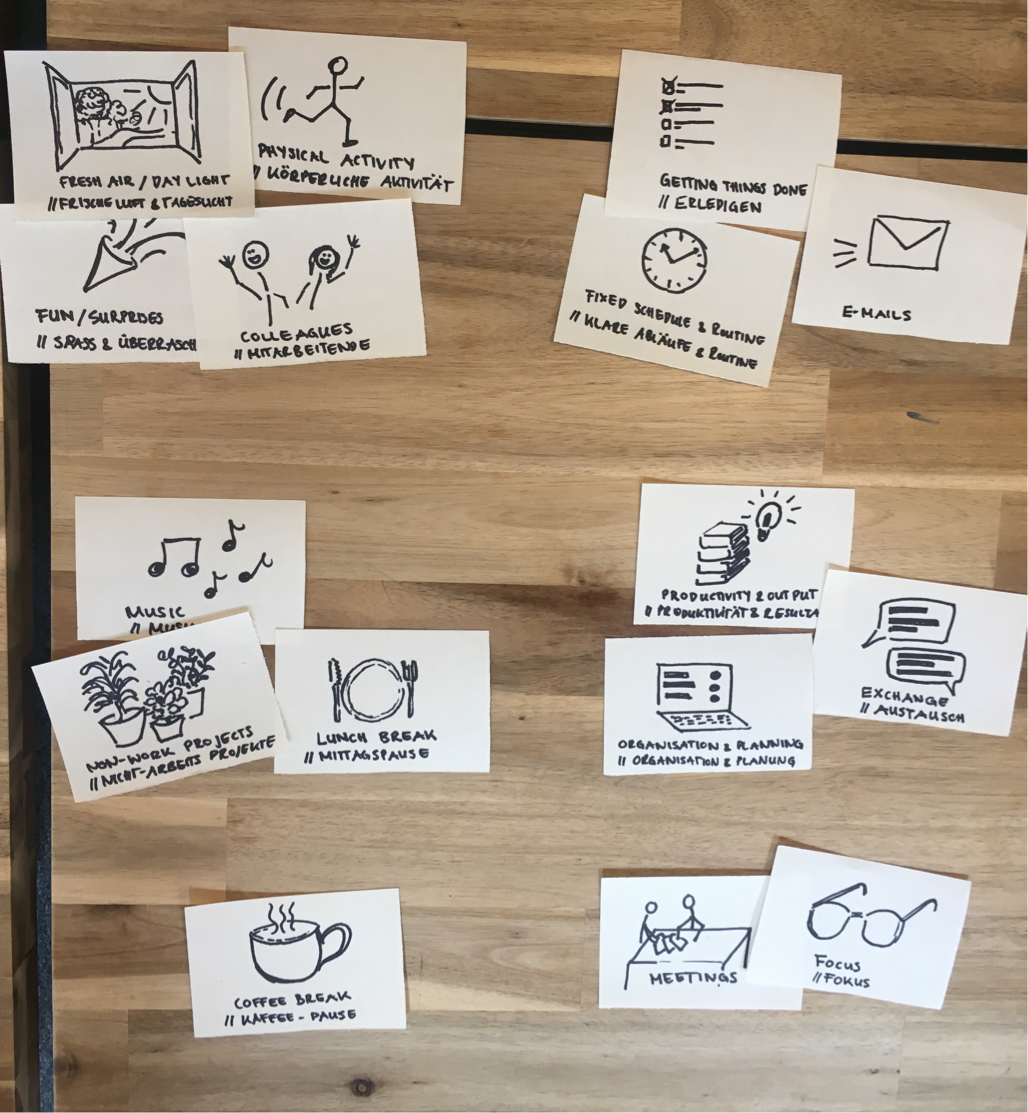 FRESH AIR / DAY LIGHT
// FRISCHE LUFT & TAGESLICHT
PHYSICAL ACTIVITY
// KÖRPERLICHE AKTIVITÄT
FUN / SURPRISES
// SPASS & ÜBERRASCH
COLLEAGUES
// MITARBEITENDE
GETTING THINGS DONE
// ERLEDIGEN
FIXED SCHEDULE & ROUTINE
// KLARE ABLÄUFE & ROUTINE
E-MAILS
MUSIC
// MUSI
NON-WORK PROJECTS
// NICHT-ARBEITS PROJEKTE
LUNCH BREAK
// MITTAGSPAUSE
PRODUCTIVITY & OUTPUT
// PRODUKTIVITÄT & RESULTA
EXCHANGE
// AUSTAUSCH
ORGANISATION & PLANNING
// ORGANISATION & PLANUNG
COFFEE BREAK
// KAFFEE - PAUSE
MEETINGS
FOCUS
// FOKUS